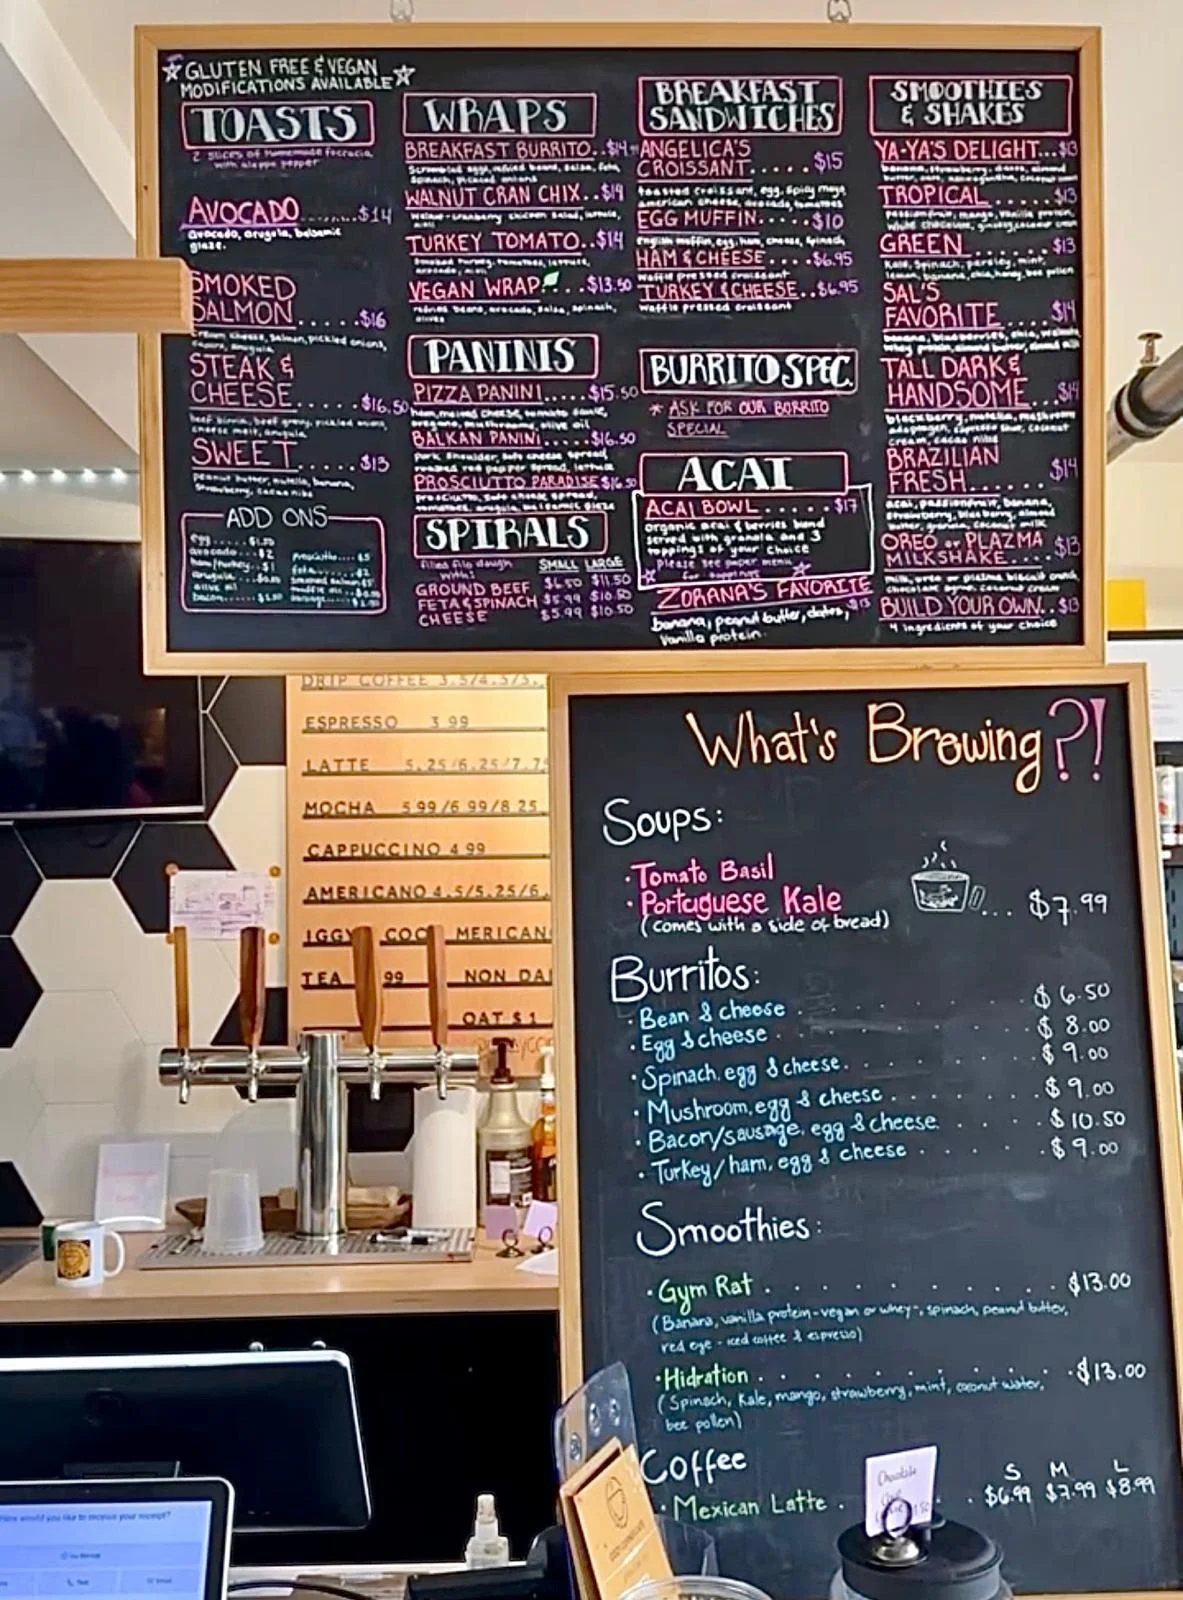 GLUTEN FREE & VEGAN
MODIFICATIONS AVAILABLE
TOASTS
2 slices of homemade focaccia
with aleppo pepper
AVOCADO........$14
avocado, arugula, balsamic
glaze.
SMOKED
SALMON.....$16
cream cheese, salmon, pickled onions,
STEAK &
CHEESE.....$16.50
beef birria, beef gravy, pickled onions,
cheese melt, arugula
SWEET.....$13
peanut butter, nutella, banana,
strawberry, cacao nibs
ADD ONS
egg $1.50
avocado $2
ham/turkey $1
arugula
olive oil
bacon $1.50
Prosciutto $5
feta $2
smoked salmon $5
sausage
WRAPS
BREAKFAST BURRITO..$14
Scrambled eggs, refried beans, salsa, feta,
spinach, pickled onions
WALNUT CRAN CHIX..$14
Walnut-cranberry chicken salad,
TURKEY TOMATO..$14
smoked turkey, tomatoes, lettuce,
VEGAN WRAP....$13.50
refried beans, avocado, salsa, spinach,
olives
PANINIS
PIZZA PANINI.....$15.50
ham, melted cheese, tomato sauce,
oregano, mushrooms, olive oil
BALKAN PANINI.....$16.50
pork shoulder, cheese spread,
roasted red pepper spread, lettuce
PROSCIUTTO PARADISE $16.50
prosciutto, cheese spread,
tomatoes, arugula, balsamic glaze
SPIRALS
filled filo dough
with:
SMALL LARGE
GROUND BEEF $6.50 $11.50
FETA & SPINACH $5.99 $10.50
CHEESE $5.99 $10.50
BREAKFAST
SANDWICHES
ANGELICA'S
CROISSANT.....$15
toasted croissant, egg, spicy mayo,
american cheese, avocado, tomatoes
EGG MUFFIN.....$10
english muffin, egg, ham, cheese, spinach
HAM & CHEESE.....$6.95
Waffle pressed croissant
TURKEY & CHEESE..$6.95
Waffle pressed croissant
BURRITO SPEC.
* ASK FOR OUR BURRITO
SPECIAL
ACAI
ACAI BOWL.....$17
organic acai & berries blend
served with granola and 3
toppings of your choice
Please see paper menu
for toppings
ZORANA'S FAVORITE
$13
banana, peanut butter, dates,
vanilla protein.
SMOOTHIES
& SHAKES
YA-YA'S DELIGHT...$13
banana, strawberry, dates, almond
TROPICAL.....$13
passionfruit, mango, vanilla protein,
GREEN.....$13
Kale, spinach, parsley, mint,
banana, chia, honey, bee pollen
SAL'S
FAVORITE....$14
banana, blueberries, chia, walnuts,
whey protein, almond butter, almond milk
TALL DARK &
HANDSOME...$14
blackberry, nutella, mushroom
collagen, espresso shot, coconut
cream, cacao nibs
BRAZILIAN
FRESH.....$14
acai, passionfruit, banana,
strawberry, blueberry, almond
butter, granola, coconut milk
OREO or PLAZMA
MILKSHAKE....$13
milk, oreo or plazma biscuit crunch,
chocolate syrup, coconut cream
BUILD YOUR OWN..$13
4 ingredients of your choice
DRIP COFFEE 3.5/4.5/5.
ESPRESSO 3.99
LATTE 5.25/6.25/7.7
MOCHA 5.99/6.99/8.25
CAPPUCCINO 4.99
AMERICANO 4.5/5.25/6.
IGGY COO MERICAN
TEA 99 NON DA
OAT $1
What's Brewing?!
Soups:
• Tomato Basil
• Portuguese Kale ... $7.99
(comes with a side of bread)
Burritos:
• Bean & cheese $6.50
• Egg & cheese $8.00
• Spinach, egg & cheese $9.00
• Mushroom, egg & cheese $9.00
• Bacon/sausage, egg & cheese $10.50
• Turkey/ham, egg & cheese $9.00
Smoothies:
• Gym Rat $13.00
(Banana, vanilla protein-vegan or whey-, spinach, peanut butter,
red eye - iced coffee & espresso)
• Hidration $13.00
(Spinach, Kale, mango, strawberry, mint, coconut water,
bee pollen)
Coffee
S M L
• Mexican Latte . $6.99 $7.99 $8.99
Chocolate
How would you like to receive your receipt?